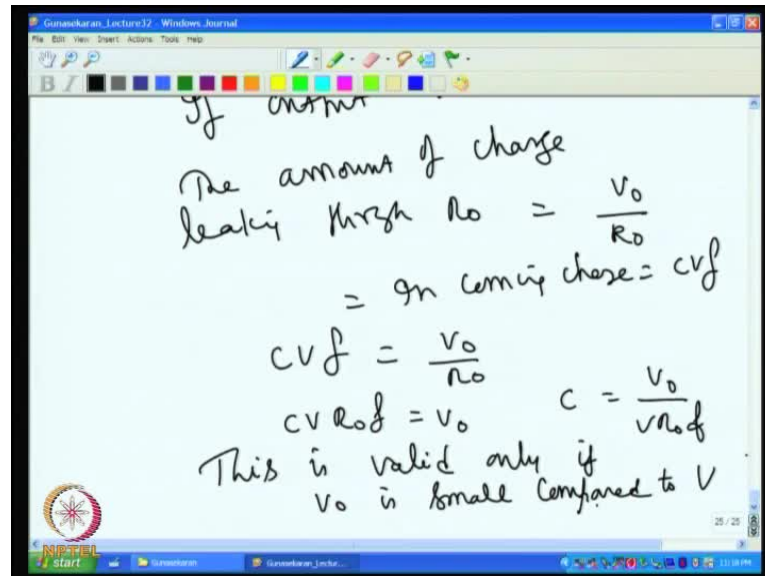 Gunasekaran_Lecture32 - Windows Journal
File Edit View Insert Actions Tools Help
B I
If output
The amount of charge
leaking through R0 = V0 / R0
= In coming charge = CVf
CVf = V0 / R0
CVR0f = V0 C = V0 / VR0f
This is valid only if
V0 is small compared to V
25 / 25
NPTEL
start Gunasekaran Gunasekaran_Lectur... 11:18 PM